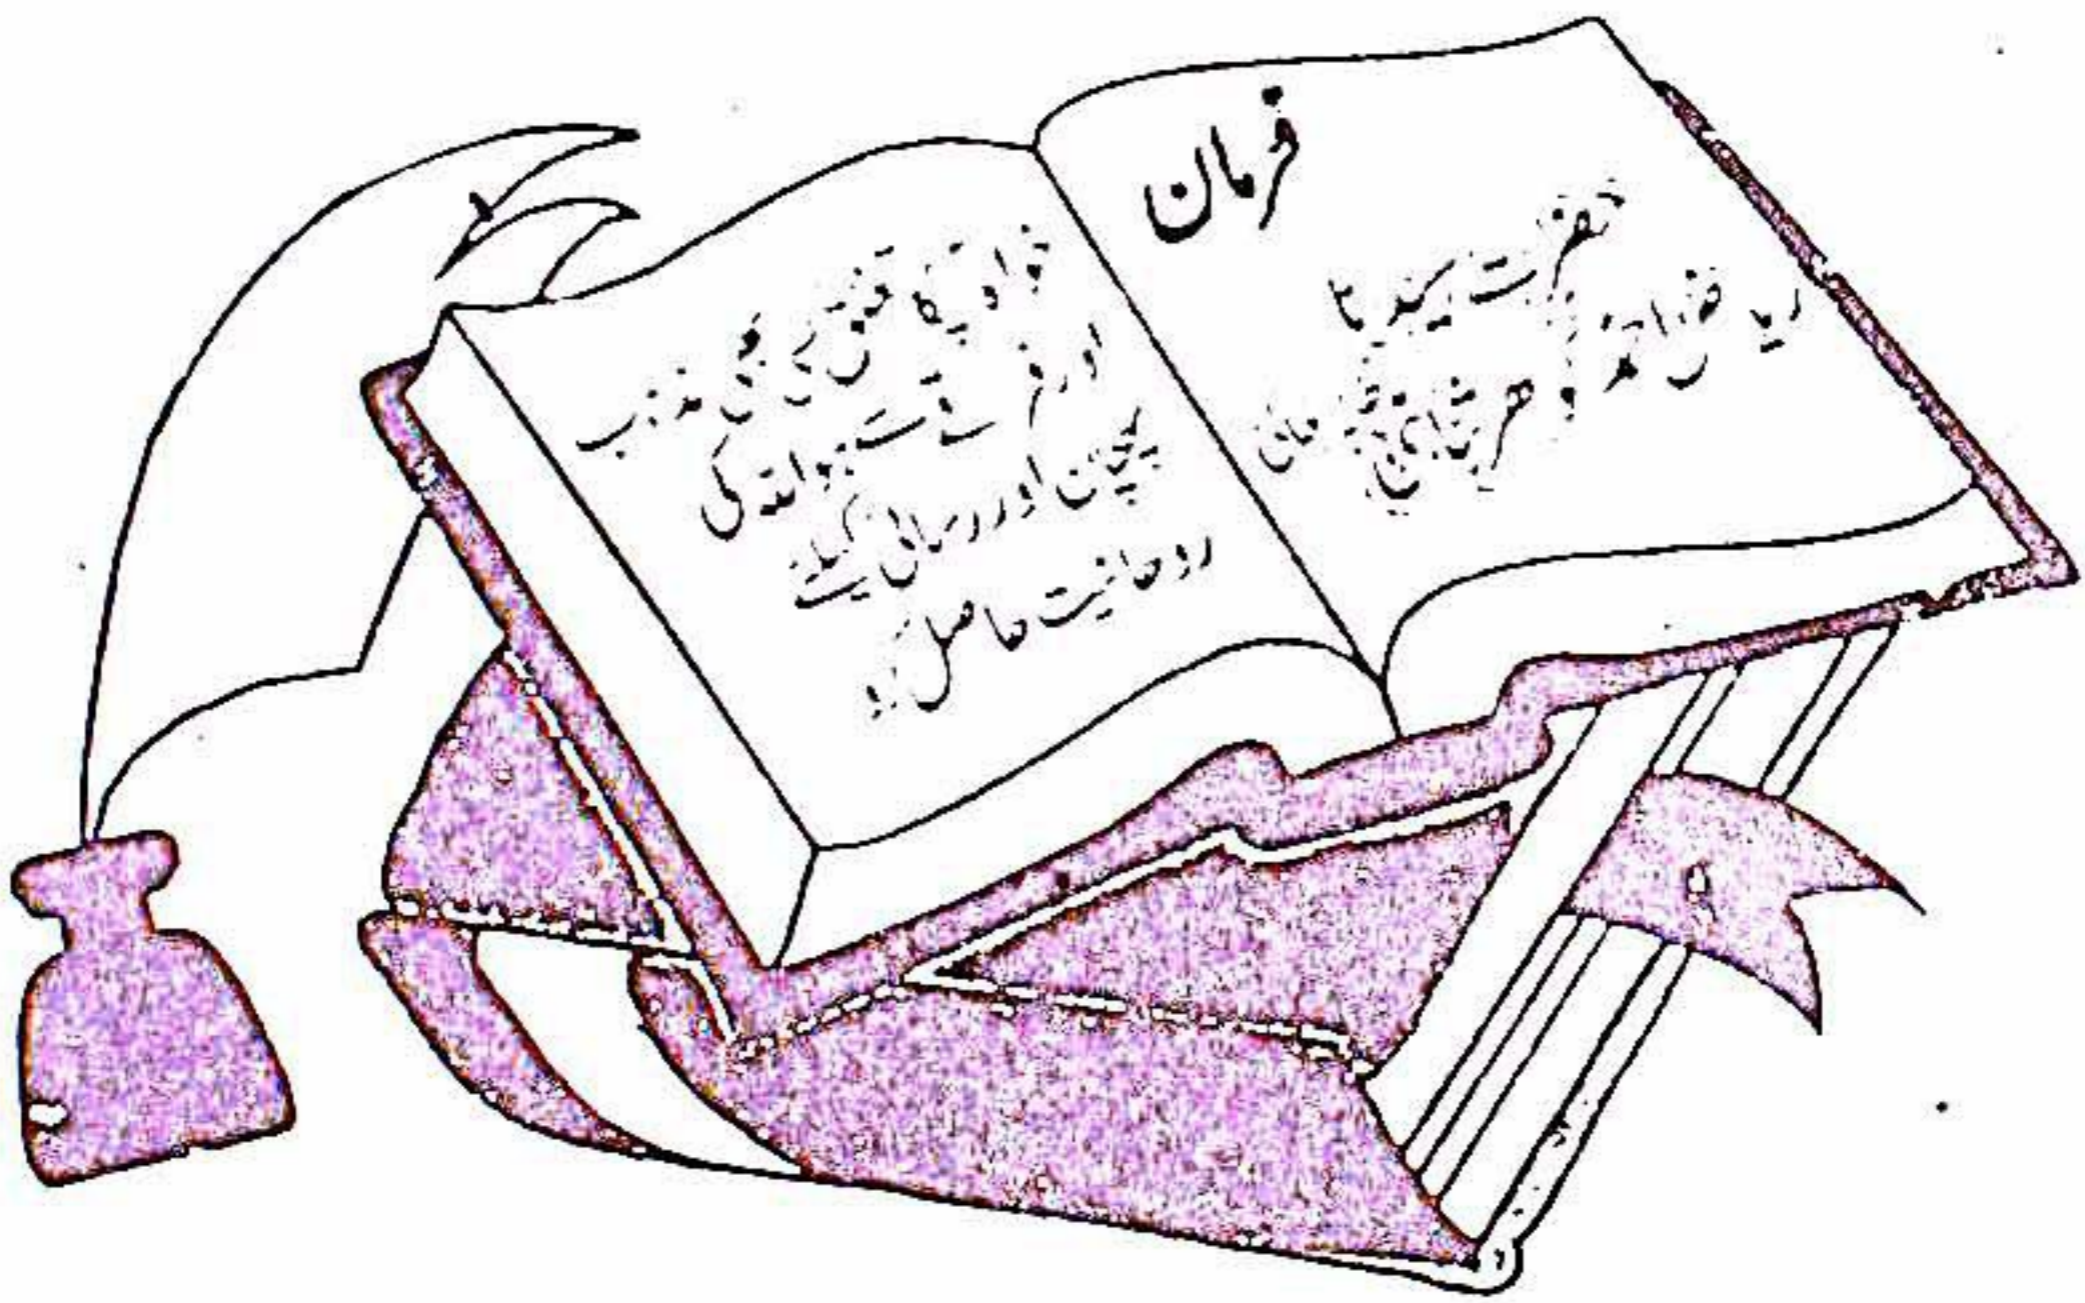 فرمان
حضرت سیدنا
ریاض احمد گوھر شاہی
خواہ تیرا تعلق کسی بھی مذہب
اور فرقے سے ہو اللہ کی
پہچان اور رسائی کیلئے
روحانیت حاصل کرو